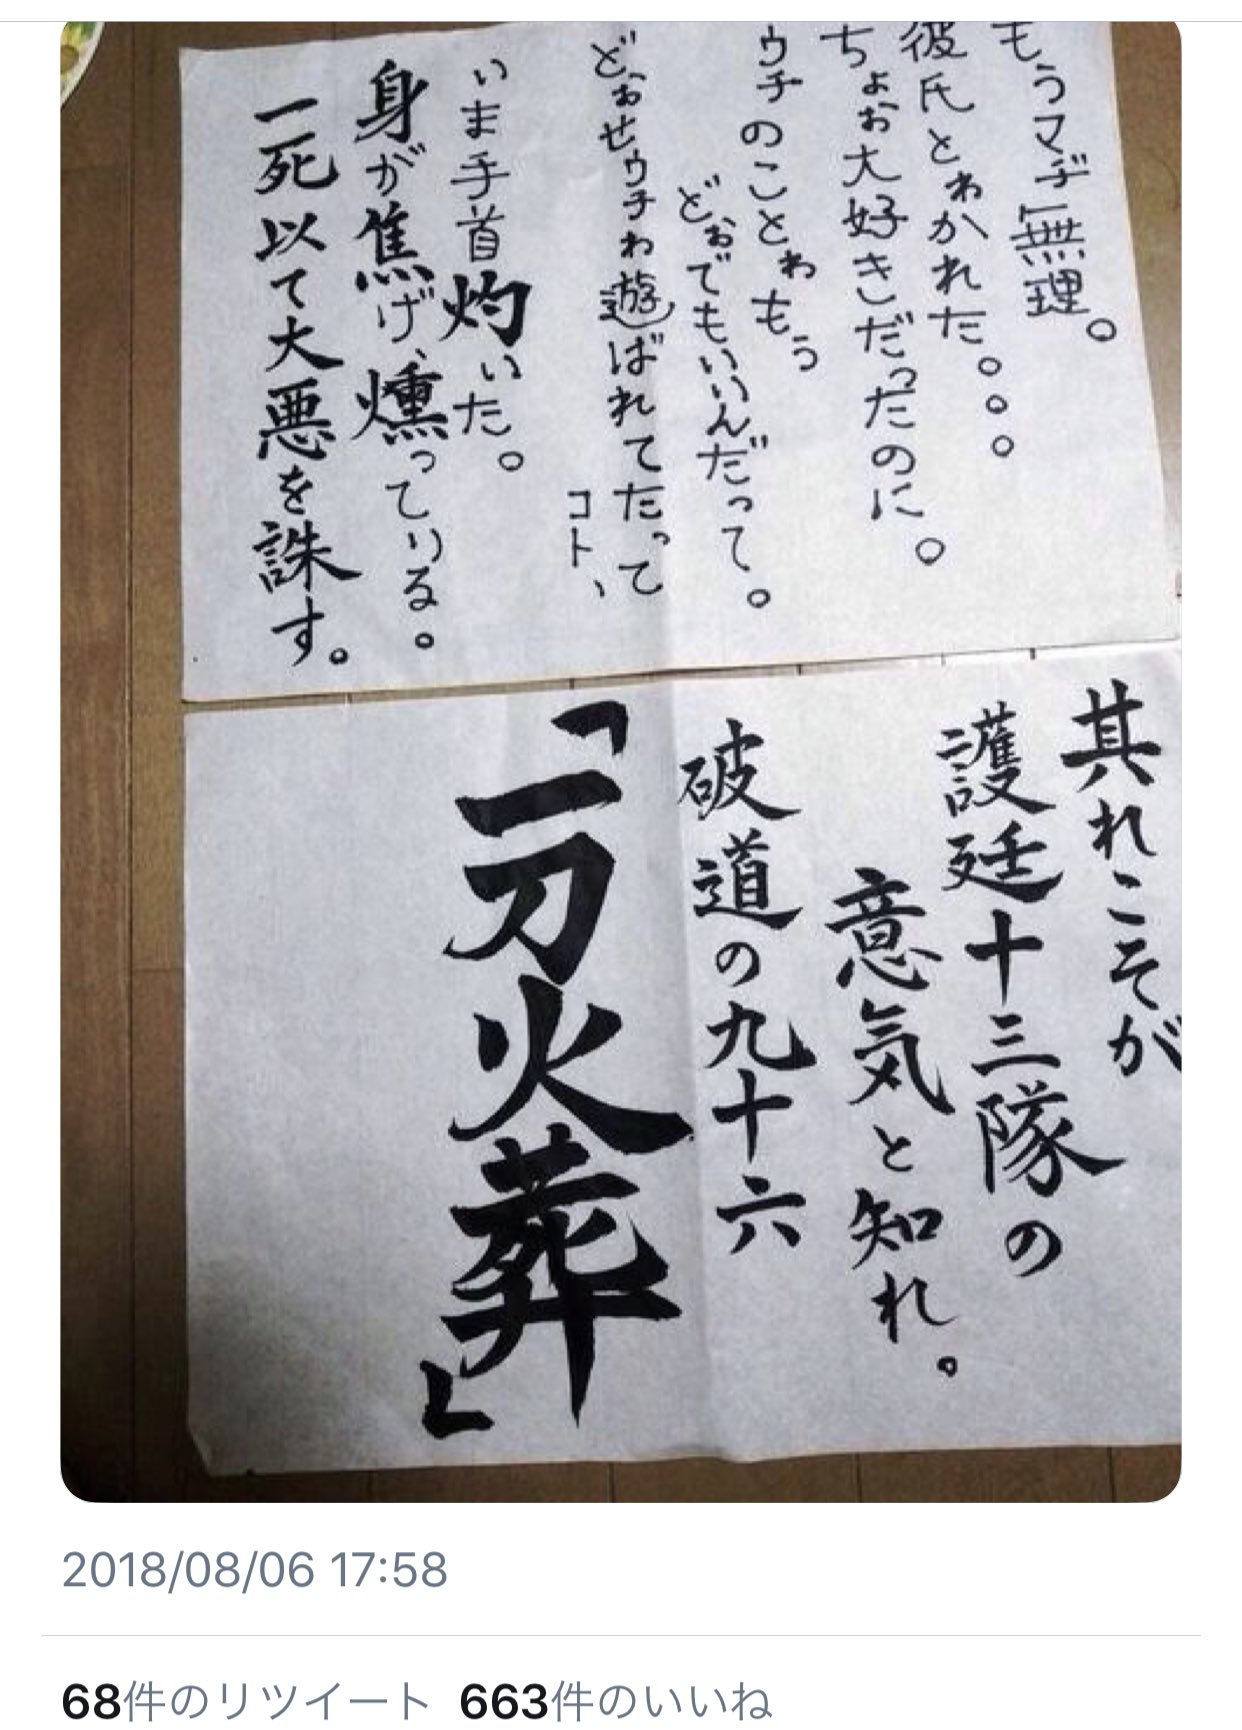 もうマヂ無理。
彼氏とゎかれた。。。
ちょぉ大好きだったのに。
ゥチのことゎもぅ
どぉでもいいんだって。
どぉせゥチゎ遊ばれてたって
コト、
ぃま手首灼ぃた。
身が焦げ、燻っている。
一死以て大悪を誅す。
其れこそが
護廷十三隊の
意気と知れ。
破道の九十六
「一刀火葬」
2018/08/06 17:58
68件のリツイート 663件のいいね